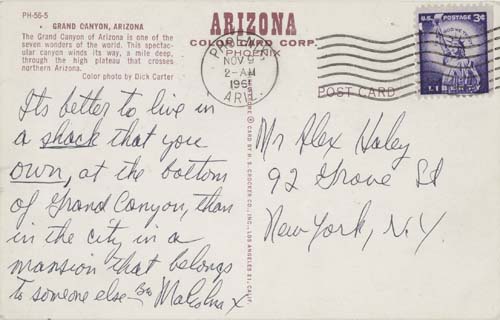 PH-56-5
• GRAND CANYON, ARIZONA
The Grand Canyon of Arizona is one of the
seven wonders of the world. This spectac-
ular canyon winds its way, a mile deep,
through the high plateau that crosses
northern Arizona.
Color photo by Dick Carter
ARIZONA
COLOR CARD CORP.
PHOENIX
NOV 9
2-AM
ARIZ.
U.S. POSTAGE 3¢
LIBERTY
POST CARD
Its better to live in
a shack that you
own, at the bottom
of Grand Canyon, than
in the city in a
mansion that belongs
to someone else— Bro Malcolm X
CARD BY H. S. CROCKER CO., INC., LOS ANGELES 21, CALIF.
Mr Alex Haley
92 Grove St
New York, N.Y.